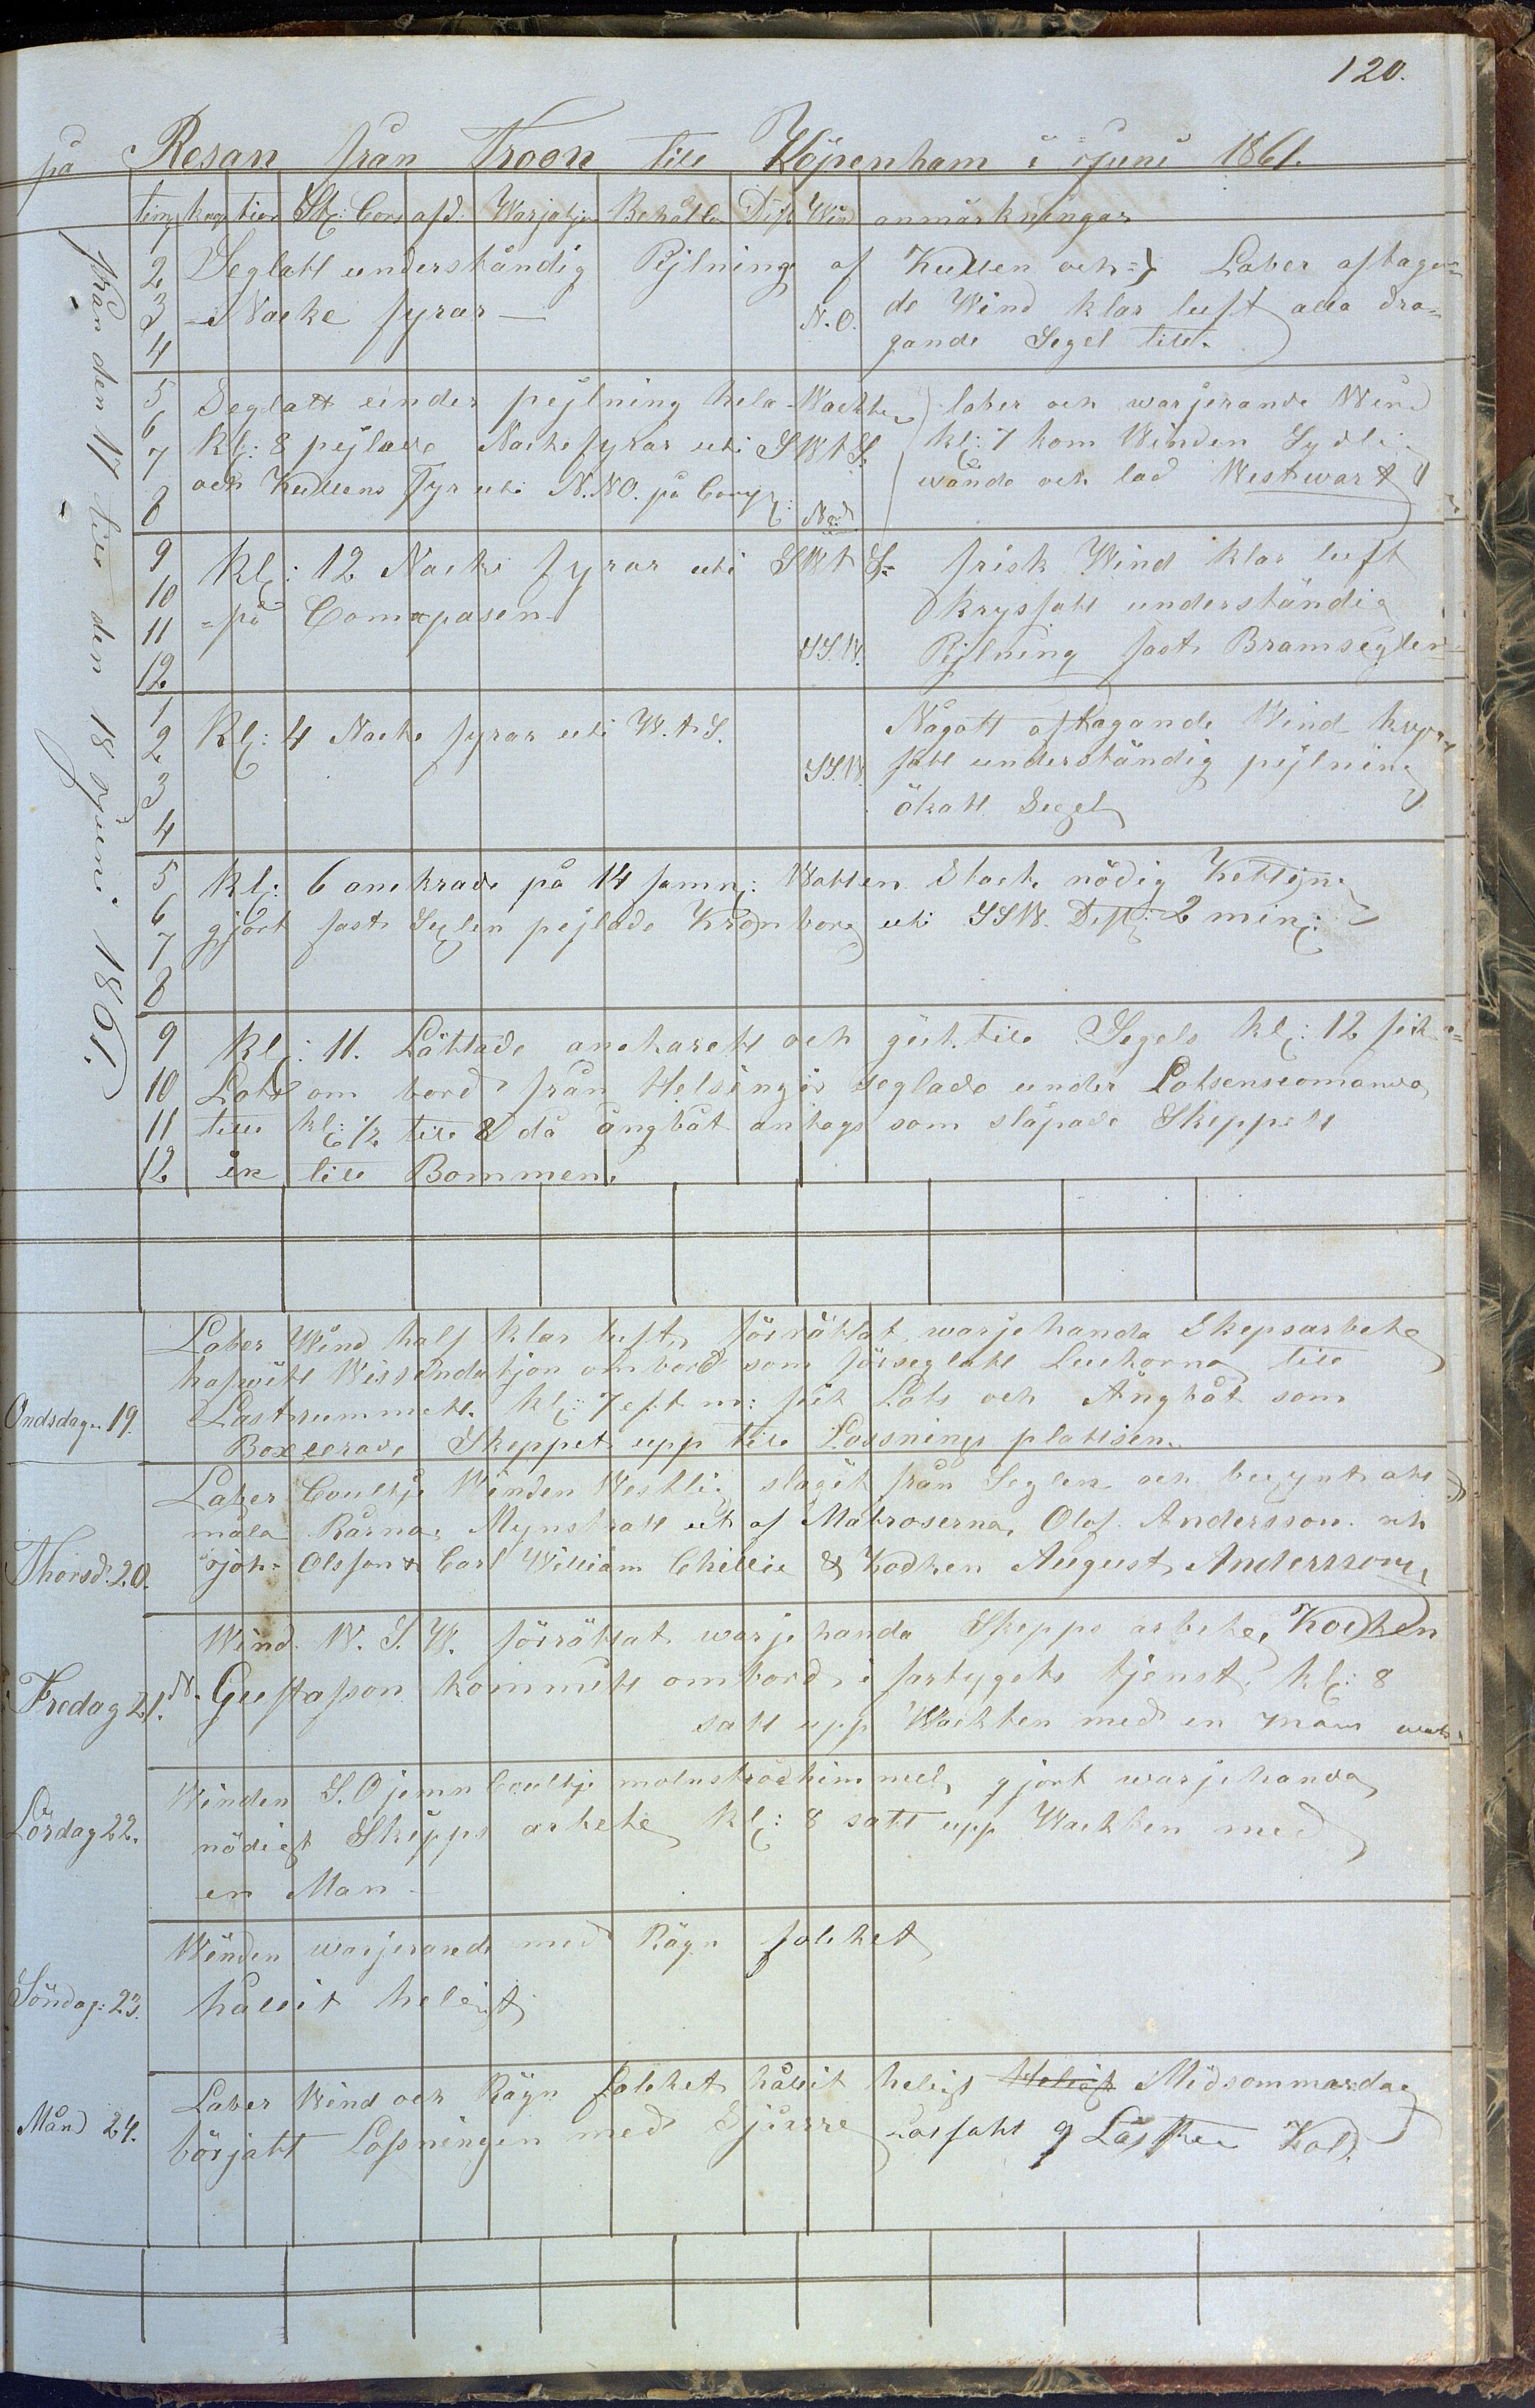 120.
på Resan från Troon till Köpenham i Juni 1861.
tim knop tior St: Cors afd. Warjatjon Behålln Dist Win anmärkningar
från den 17 till den 18 Juni 1861.
1
2 Seglatt underständig Pejlning af Kullen och Laber aftagen=
3 Nacke fyrar N.O. de Wind klar luft alla dra=
4 gande Segel till.
5 Seglatt under pejlning hela Wackten laber och warjerande Wind
6
7 kl: 8 pejlade Nacke fyrar uti SWtS. kl: 7 kom Winden Sydlig
8 och Kullens Fyr uti N.NO. på Comp: wände och lad Westwart
9 kl: 12 Nacke fyrar uti SWtS= frisk Wind klar luft
10
11 =på Comapasen Kryssatt underständig
12 SS.W. Pejlning fast Bramseglen
1
2 Kl: 4 Nacke fyrar uti W.t.S. Någott aftagande Wind krys=
3 SS.W. satt underständig pejlning
4 ökatt Segel
5 kl: 6 anckrade på 14 famn: Watten Stack nödig Kettijng
6
7 gjort fast Seglen pejlade Kronborg uti SSW. Dist: 2 min:
8
9 kl: 11. Lättade anckarett och gick till Segels kl: 12 fick
10 Lots om bord från Helsingör seglade under Lotsens comando
11 till kl: 1/2 till 8 då ångbåt antogs som släpade Skeppett
12 in till Bommen.
Laber Wind half klar luft, förrättat warjehanda Skepsarbete
hafwitt Wissendatjon ombord som förseglatt Luckorna till
Ondsdag. 19. Lastrummett. kl: 7 eft. m: fick Lots och Ångbåt som
Boxerade Skeppet upp till Lossnings plattsen.
Laber Coultje Winden Westlig slagit från Seglen och begynt att
måla Rårna, Mynstratt ut af Matroserna, Olof Andersson och
Thorsd. 20. Joh= Olsson & Carl William Chillie & Kocken August Andersson,
Wind W.S.W. förrättat warjehanda Skepps arbete, Kocken
Fredag 21. N. Gustafson kommitt ombord i fartygets tjenst, kl: 8
satt upp Wackten med en man
Winden S.O jemn Coultje molnströdhimmel, gjort warjehanda
Lördag 22. nödigt Skepps arbete kl: 8 satt upp Wackten med
en Man
Winden warjerande med Rägn folcket
Söndag: 23. hållit heligt
Laber Wind och Rägn folcket hållit heligt Heligt Midsommardag
Månd 24. börjatt Lossningen med Lossatt 9 Läster Kol.